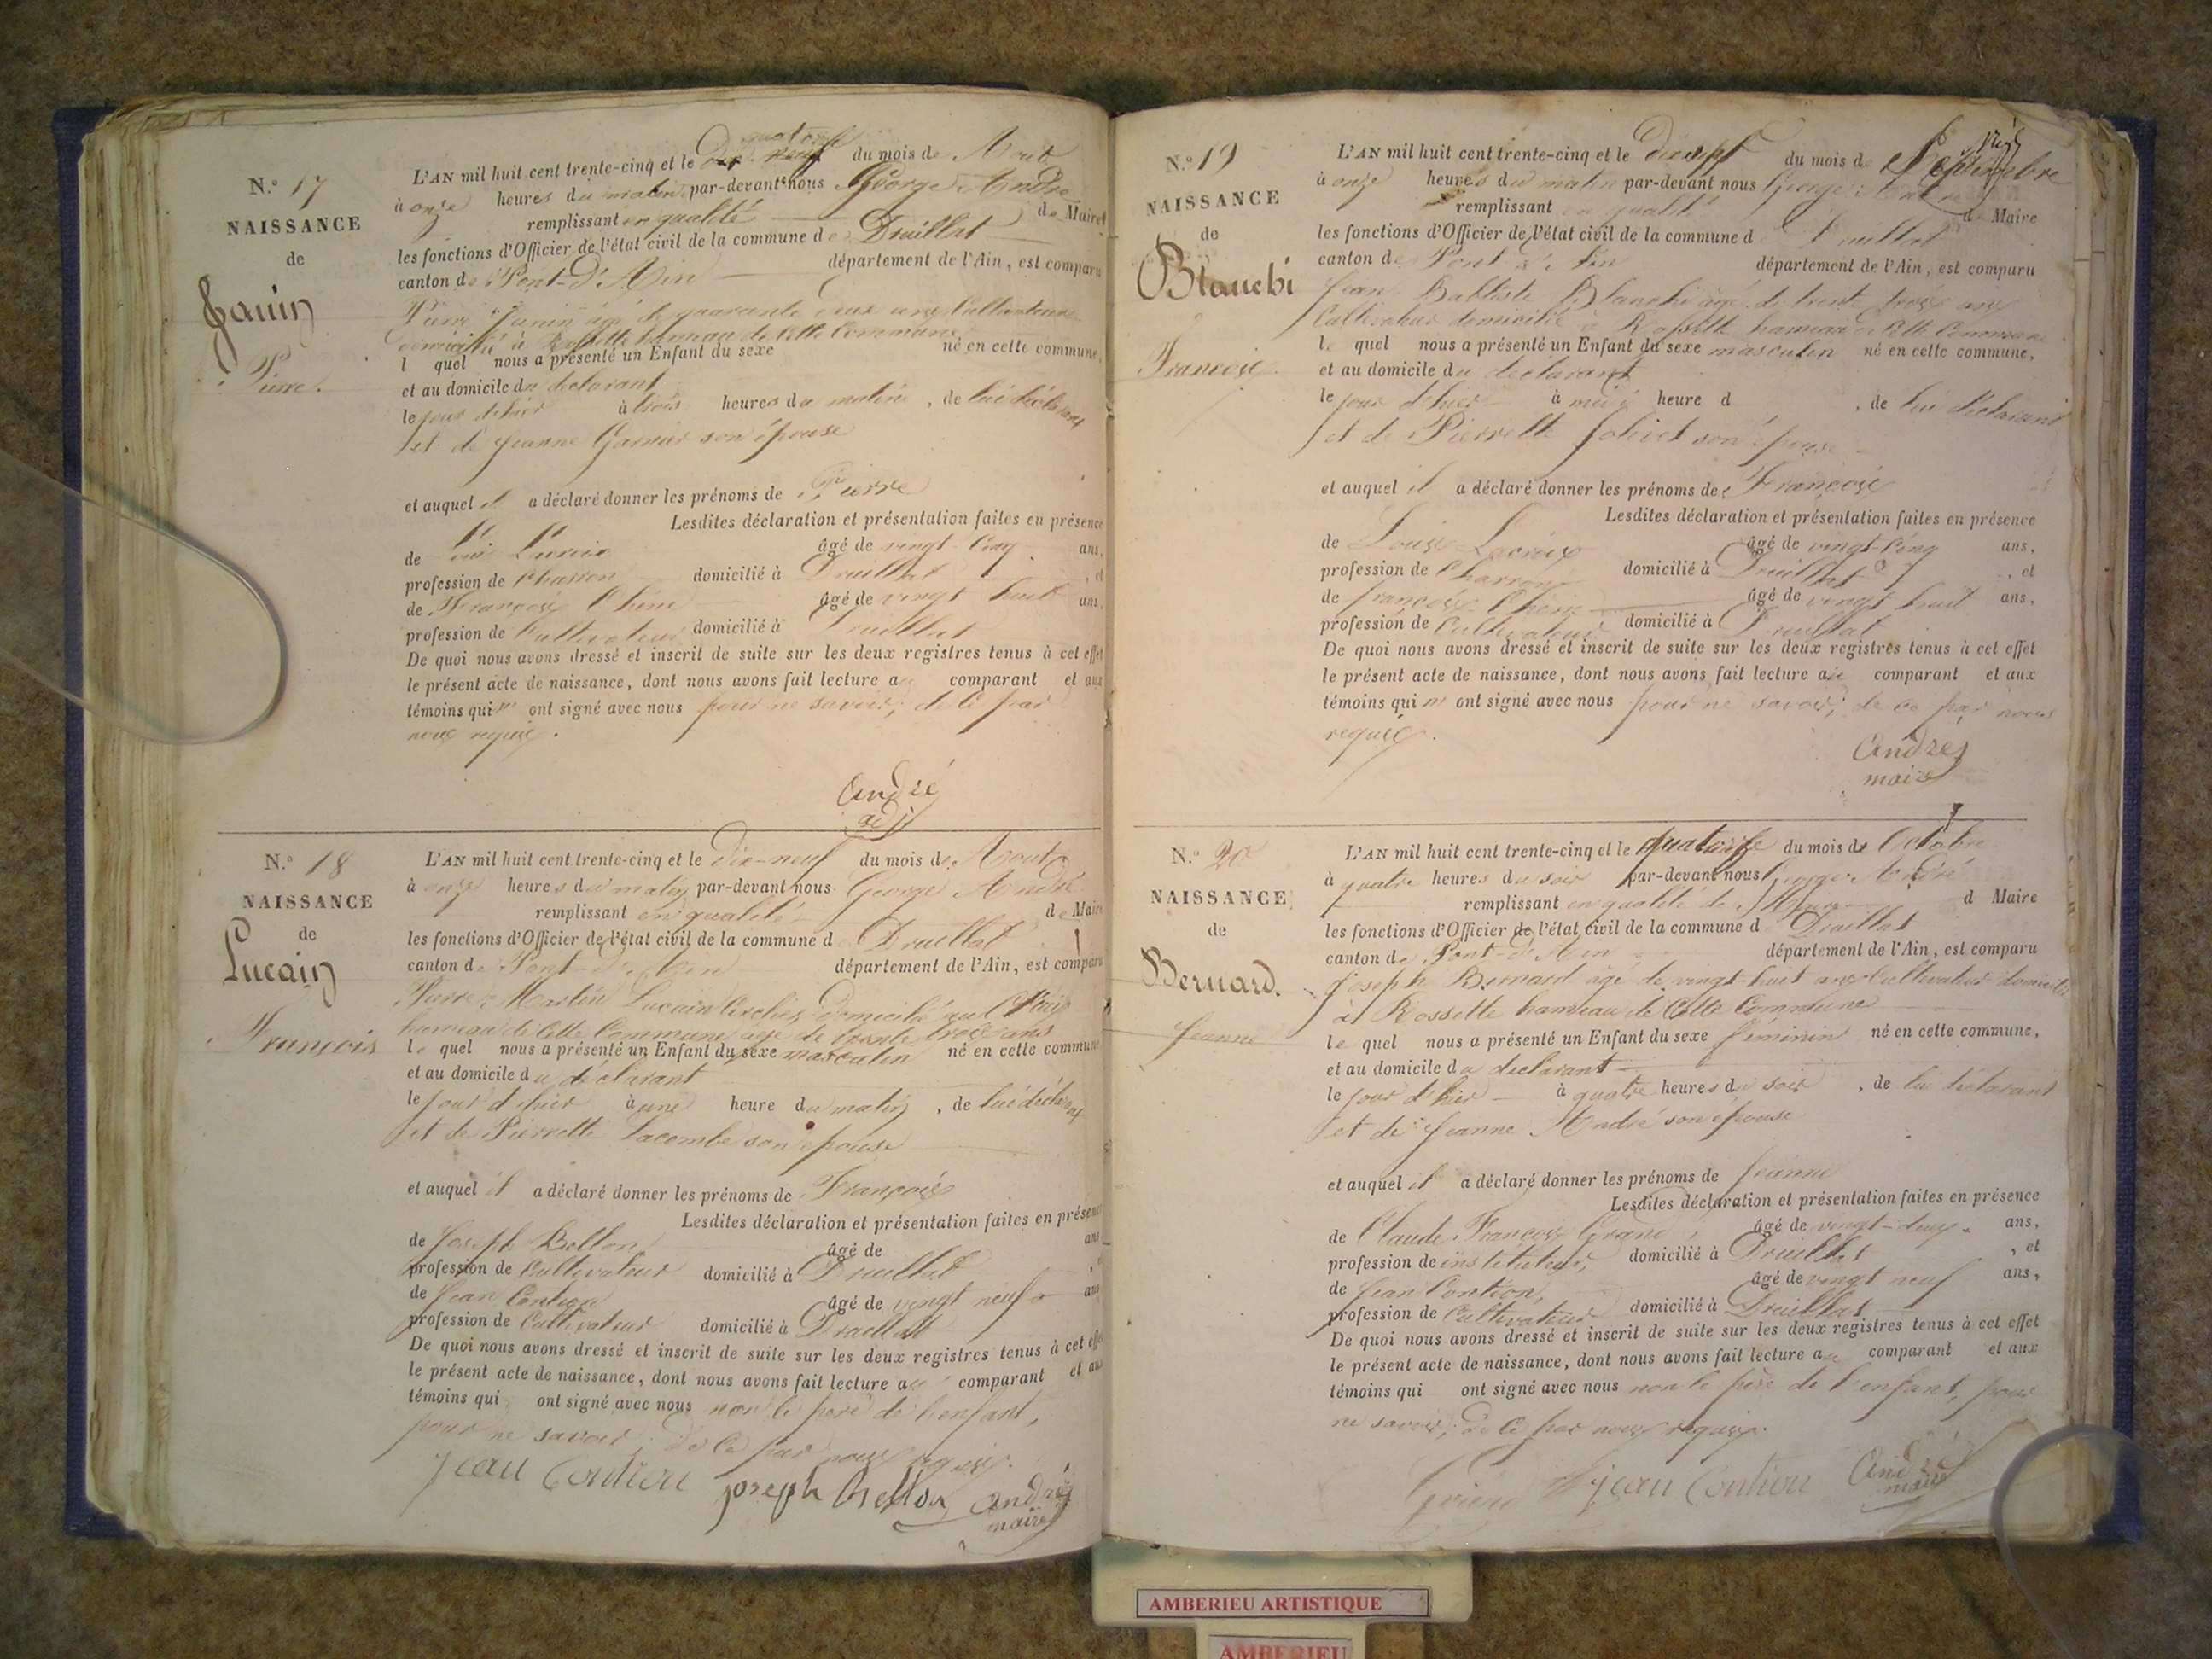 N.º 17
NAISSANCE
de
Janin
Pierre.
L'AN mil huit cent trente-cinq et le quatorze du mois de Aout
à onze heures du matin par-devant nous George André
remplissant en qualité de Maire
les fonctions d'Officier de l'état civil de la commune de Druillat
canton de Pont-d'Ain département de l'Ain, est comparu
Pierre Janin âgé de quarante deux ans Cultivateur
domicilié à Rossette hameau de Cette Commune
l quel nous a présenté un Enfant du sexe né en cette commune,
et au domicile du déclarant
le jour d'hier à trois heures du matin, de lui déclarant
et de Jeanne Garnier son épouse
et auquel il a déclaré donner les prénoms de Pierre
Lesdites déclaration et présentation faites en présence
de Lacroix âgé de vingt-Cinq ans,
profession de Charron domicilié à Druillat, et
de François Chêne âgé de vingt huit ans,
profession de Cultivateur domicilié à Druillat
De quoi nous avons dressé et inscrit de suite sur les deux registres tenus à cet effet
le présent acte de naissance, dont nous avons fait lecture au comparant et aux
témoins qui n' ont signé avec nous pour ne savoir; de ce par
nous requis.
André
adj
N.º 18
NAISSANCE
de
Lucain
François
L'AN mil huit cent trente-cinq et le Dix-neuf du mois de Aout
à onze heures du matin par-devant nous George André
remplissant en qualité de Maire
les fonctions d'Officier de l'état civil de la commune d Druillat
canton de Pont-d'Ain département de l'Ain, est comparu
Pierre Martin Lucain domicilié au
hameau de Cette Commune âgé de trente trois ans
le quel nous a présenté un Enfant du sexe masculin né en cette commune
et au domicile du déclarant
le jour d'hier à une heure du matin, de lui déclarant
et de Pierrette Lacombe son épouse
et auquel il a déclaré donner les prénoms de François
Lesdites déclaration et présentation faites en présence
de Joseph Bellon âgé de ans
profession de Cultivateur domicilié à Druillat
de Jean Contion âgé de vingt neuf ans
profession de Cultivateur domicilié à Druillat
De quoi nous avons dressé et inscrit de suite sur les deux registres tenus à cet effet
le présent acte de naissance, dont nous avons fait lecture au comparant et aux
témoins qui ont signé avec nous non le père de l'enfant,
pour ne savoir; de ce par nous requis.
Jean Contion Joseph Bellon André
maire
N.º 19
NAISSANCE
de
Blanchi
François.
L'AN mil huit cent trente-cinq et le dixsept du mois de Septembre
à onze heures du matin par-devant nous George André
remplissant en qualité de Maire
les fonctions d'Officier de l'état civil de la commune d Druillat
canton de Pont d'Ain département de l'Ain, est comparu
Jean Babtiste Blanchi âgé de trente trois ans
Cultivateur domicilié à Rossette hameau de Cette Commune
le quel nous a présenté un Enfant du sexe masculin né en cette commune,
et au domicile du déclarant
le jour d'hier à midi heure d , de lui déclarant
et de Pierrette Jolivet son épouse
et auquel il a déclaré donner les prénoms de François
Lesdites déclaration et présentation faites en présence
de Louis Lacroix âgé de vingt-Cinq ans,
profession de Charron domicilié à Druillat, et
de François Chêne âgé de vingt huit ans,
profession de Cultivateur domicilié à Druillat
De quoi nous avons dressé et inscrit de suite sur les deux registres tenus à cet effet
le présent acte de naissance, dont nous avons fait lecture au comparant et aux
témoins qui n' ont signé avec nous pour ne savoir; de ce par nous
requis.
André
maire
N.º 20
NAISSANCE
de
Bernard.
Jeanne
L'AN mil huit cent trente-cinq et le quatorze du mois de Octobre
à quatre heures du soir par-devant nous George André
remplissant en qualité de Maire d Maire
les fonctions d'Officier de l'état civil de la commune d Druillat
canton de Pont-d'Ain département de l'Ain, est comparu
Joseph Bernard âgé de vingt-huit ans Cultivateur domicilié
à Rossette hameau de Cette Commune
le quel nous a présenté un Enfant du sexe féminin né en cette commune,
et au domicile du déclarant
le jour d'hier à quatre heures du soir, de lui déclarant
et de Jeanne André son épouse
et auquel il a déclaré donner les prénoms de Jeanne
Lesdites déclaration et présentation faites en présence
de Claude François âgé de vingt-deux ans,
profession de instituteur, domicilié à Druillat, et
de Jean Contion, âgé de vingt neuf ans,
profession de Cultivateur domicilié à Druillat
De quoi nous avons dressé et inscrit de suite sur les deux registres tenus à cet effet
le présent acte de naissance, dont nous avons fait lecture au comparant et aux
témoins qui ont signé avec nous non le père de l'enfant, pour
ne savoir; de ce par nous requis.
Jean Contion André
maire
AMBERIEU ARTISTIQUE
AMBERIEU